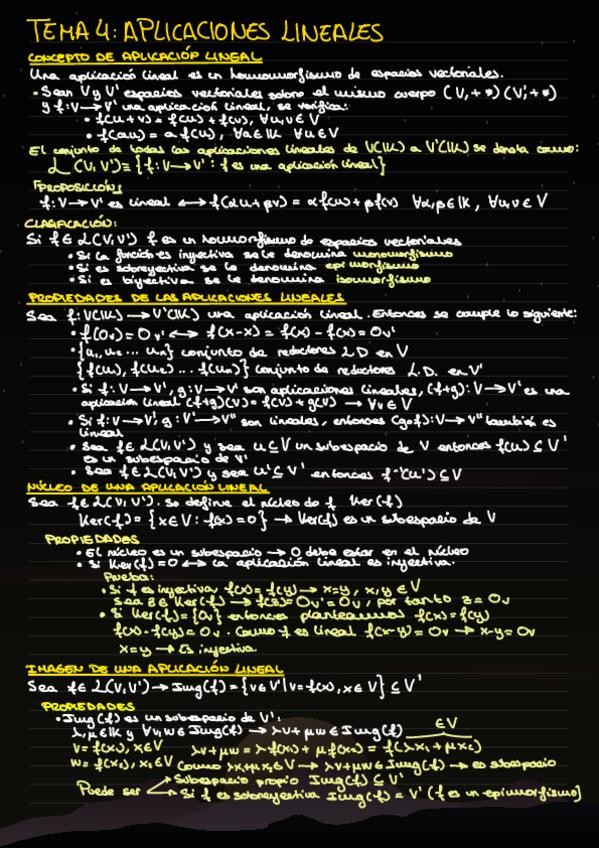 TEMA 4: APLICACIONES LINEALES
CONCEPTO DE APLICACIÓN LINEAL
Una aplicación lineal es un homomorfismo de espacios vectoriales.
• Sean V y V' espacios vectoriales sobre el mismo cuerpo (V,+,*) (V',+,*)
y f: V → V' una aplicación lineal, se verifica:
• f(u+v) = f(u) + f(v), ∀u,v ∈ V
• f(au) = a f(u), ∀a ∈ K ∀u ∈ V
El conjunto de todas las aplicaciones lineales de V(K) a V'(K) se denota como:
L(V,V') = {f: V → V' : f es una aplicación lineal}
PROPOSICIÓN
f: V → V' es lineal ↔ f(αu + βv) = αf(u) + βf(v) ∀α,β ∈ K, ∀u,v ∈ V
CLASIFICACIÓN:
Si f ∈ L(V,V') f es un homomorfismo de espacios vectoriales
• Si la función es inyectiva se le denomina monomorfismo
• Si es sobreyectiva se le denomina epimorfismo
• Si es biyectiva se le denomina isomorfismo
PROPIEDADES DE LAS APLICACIONES LINEALES
Sea f: V(K) → V'(K) una aplicación lineal. Entonces se cumple lo siguiente:
• f(0v) = 0v' ↔ f(x-x) = f(x) - f(x) = 0v'
• {u₁, u₂ ... un} conjunto de vectores L.D en V
{f(u₁), f(u₂) ... f(un)} conjunto de vectores L.D. en V'
• Si f: V → V', g: V → V' son aplicaciones lineales, (f+g): V → V' es una
aplicación lineal (f+g)(v) = f(v) + g(v) → ∀v ∈ V
• Si f: V → V', g: V' → V'' son lineales, entonces (g∘f): V → V'' también es
lineal
• Sea f ∈ L(V,V') y sea U ⊆ V un subespacio de V entonces f(U) ⊆ V'
es un subespacio de V'
• Sea f ∈ L(V,V') y sea U' ⊆ V' entonces f⁻¹(U') ⊆ V
NÚCLEO DE UNA APLICACIÓN LINEAL
Sea f ∈ L(V,V'). Se define el núcleo de f Ker(f)
Ker(f) = {x ∈ V : f(x) = 0} → Ker(f) es un subespacio de V
PROPIEDADES
• El núcleo es un subespacio → 0 debe estar en el núcleo
• Si Ker(f) = 0 ↔ La aplicación lineal es inyectiva.
Prueba:
• Si f es inyectiva f(x) = f(y) → x=y, x,y ∈ V
Sea z ∈ Ker(f) → f(z) = 0v' = 0v, por tanto z = 0v
• Si Ker(f) = {0v} entonces planteamos f(x) = f(y)
f(x) - f(y) = 0v. Como f es lineal f(x-y) = 0v → x-y = 0v
x=y → Es inyectiva.
IMAGEN DE UNA APLICACIÓN LINEAL
Sea f ∈ L(V,V') → Img(f) = {v ∈ V' | v = f(x), x ∈ V} ⊆ V'
PROPIEDADES
• Img(f) es un subespacio de V':
λ,μ ∈ K y ∀v,w ∈ Img(f) → λv + μw ∈ Img(f) ∈V
v = f(x₁), x₁ ∈ V λv + μw = λf(x₁) + μf(x₂) = f(λx₁ + μx₂)
w = f(x₂), x₂ ∈ V Como λx₁+μx₂ ∈ V → λv + μw ∈ Img(f) → es subespacio
Puede ser Subespacio propio Img(f) ⊆ V'
Si f es sobreyectiva Img(f) = V' (f es un epimorfismo)